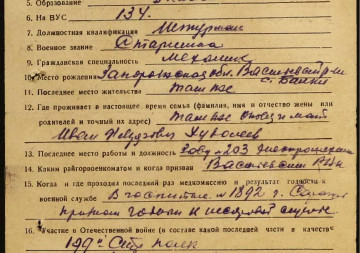 5. Образование
6. На ВУС 134.
7. Должностная квалификация
8. Военное звание Старшина
9. Гражданская специальность механик
10. Место рождения Запорожская обл. Василевский р-н
с. Балки
11. Последнее место жительства там же
12. Где проживает в настоящее время семья (фамилия, имя и отчество жены или
родителей и точный их адрес) там же отец и мать
Иван
13. Последнее место работы и должность
14. Каким райгорвоенкоматом и когда призван Василевским РВК
15. Когда и где проходил последний раз медкомиссию и результат годности к
военной службе В госпитале № 1892 г.
признан годным к
16. Участие в Отечественной войне (в составе какой последней части в качестве
полк